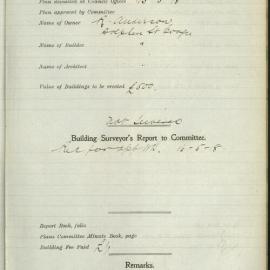 Plan deposited at Council Office 13 5 18
Plan approved by Committee
Name of Owner R. Anderson,
Name of Builder "
Name of Architect "
Value of Buildings to be erected £500.
Building Surveyor's Report to Committee.
Report Book, folio
Plans Committee Minute Book, page
Building Fee Paid £1/
Remarks.